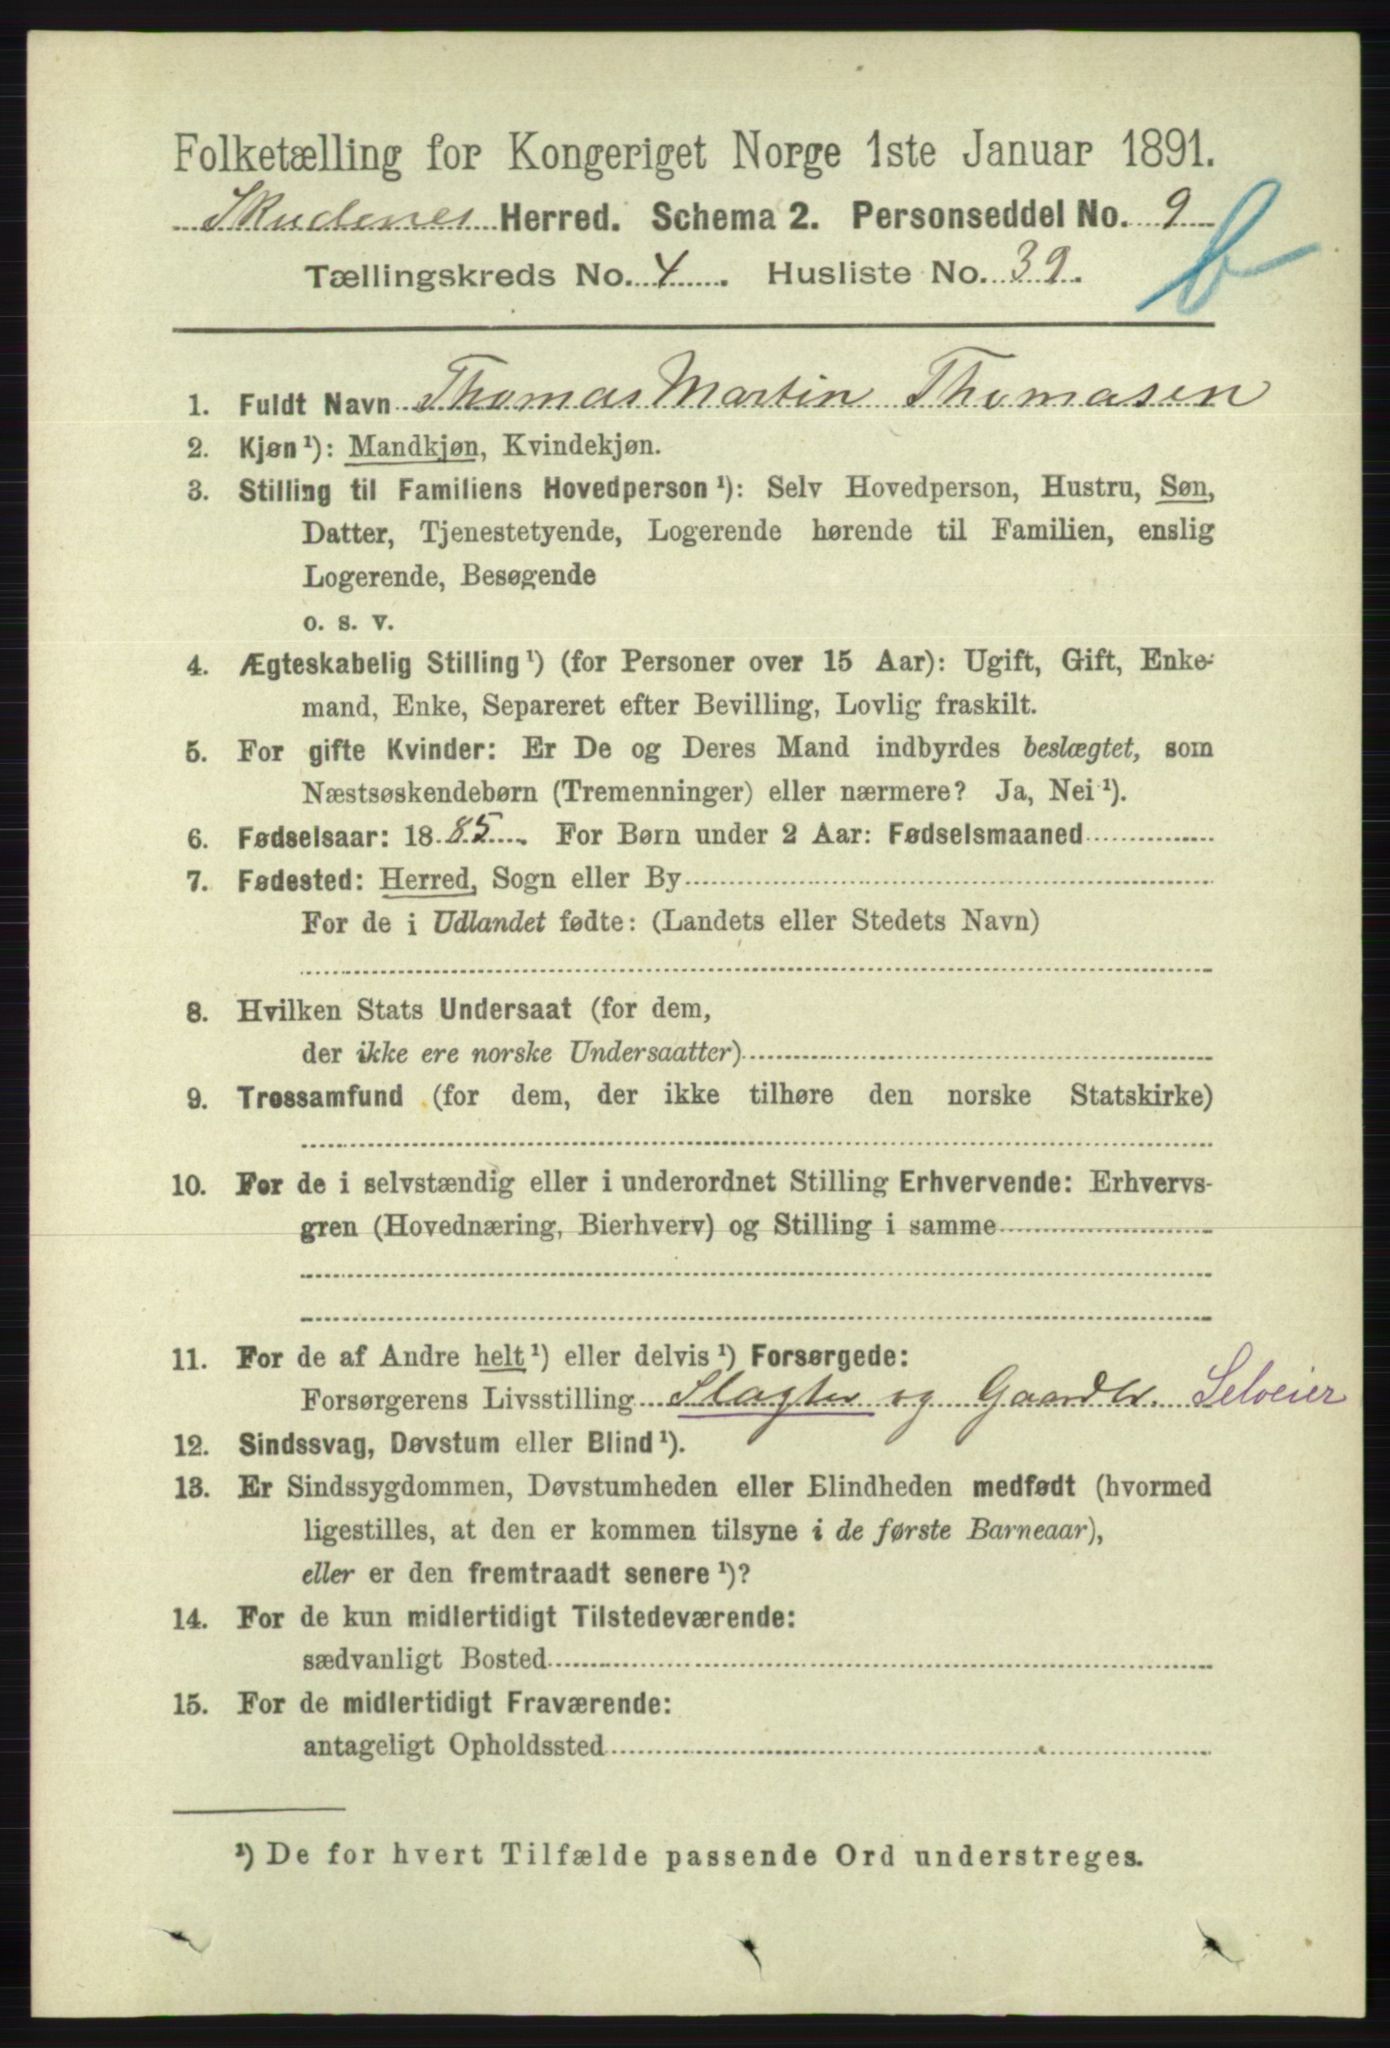 Folketælling for Kongeriget Norge 1ste Januar 1891.
Skudenes Herred. Schema 2. Personseddel No. 9
b
Tællingskreds No. 4. Husliste No. 39.
1. Fuldt Navn Thomas Martin Thomasen
2. Kjøn¹): Mandkjøn, Kvindekjøn.
3. Stilling til Familiens Hovedperson¹): Selv Hovedperson, Hustru, Søn,
Datter, Tjenestetyende, Logerende hørende til Familien, enslig
Logerende, Besøgende
o. s. v.
4. Ægteskabelig Stilling¹) (for Personer over 15 Aar): Ugift, Gift, Enke-
mand, Enke, Separeret efter Bevilling, Lovlig fraskilt.
5. For gifte Kvinder: Er De og Deres Mand indbyrdes beslægtet, som
Næstsøskendebørn (Tremenninger) eller nærmere? Ja, Nei¹).
6. Fødselsaar: 1885. For Børn under 2 Aar: Fødselsmaaned
7. Fødested: Herred, Sogn eller By
For de i Udlandet fødte: (Landets eller Stedets Navn)
8. Hvilken Stats Undersaat (for dem,
der ikke ere norske Undersaatter)
9. Trossamfund (for dem, der ikke tilhøre den norske Statskirke)
10. For de i selvstændig eller i underordnet Stilling Erhvervende: Erhvervs-
gren (Hovednæring, Bierhverv) og Stilling i samme
11. For de af Andre helt¹) eller delvis¹) Forsørgede:
Forsørgerens Livsstilling Slagter og Gaardbr. Selveier
12. Sindssvag, Døvstum eller Blind¹).
13. Er Sindssygdommen, Døvstumheden eller Blindheden medfødt (hvormed
ligestilles, at den er kommen tilsyne i de første Barneaar),
eller er den fremtraadt senere¹)?
14. For de kun midlertidigt Tilstedeværende:
sædvanligt Bosted
15. For de midlertidigt Fraværende:
antageligt Opholdssted
¹) De for hvert Tilfælde passende Ord understreges.